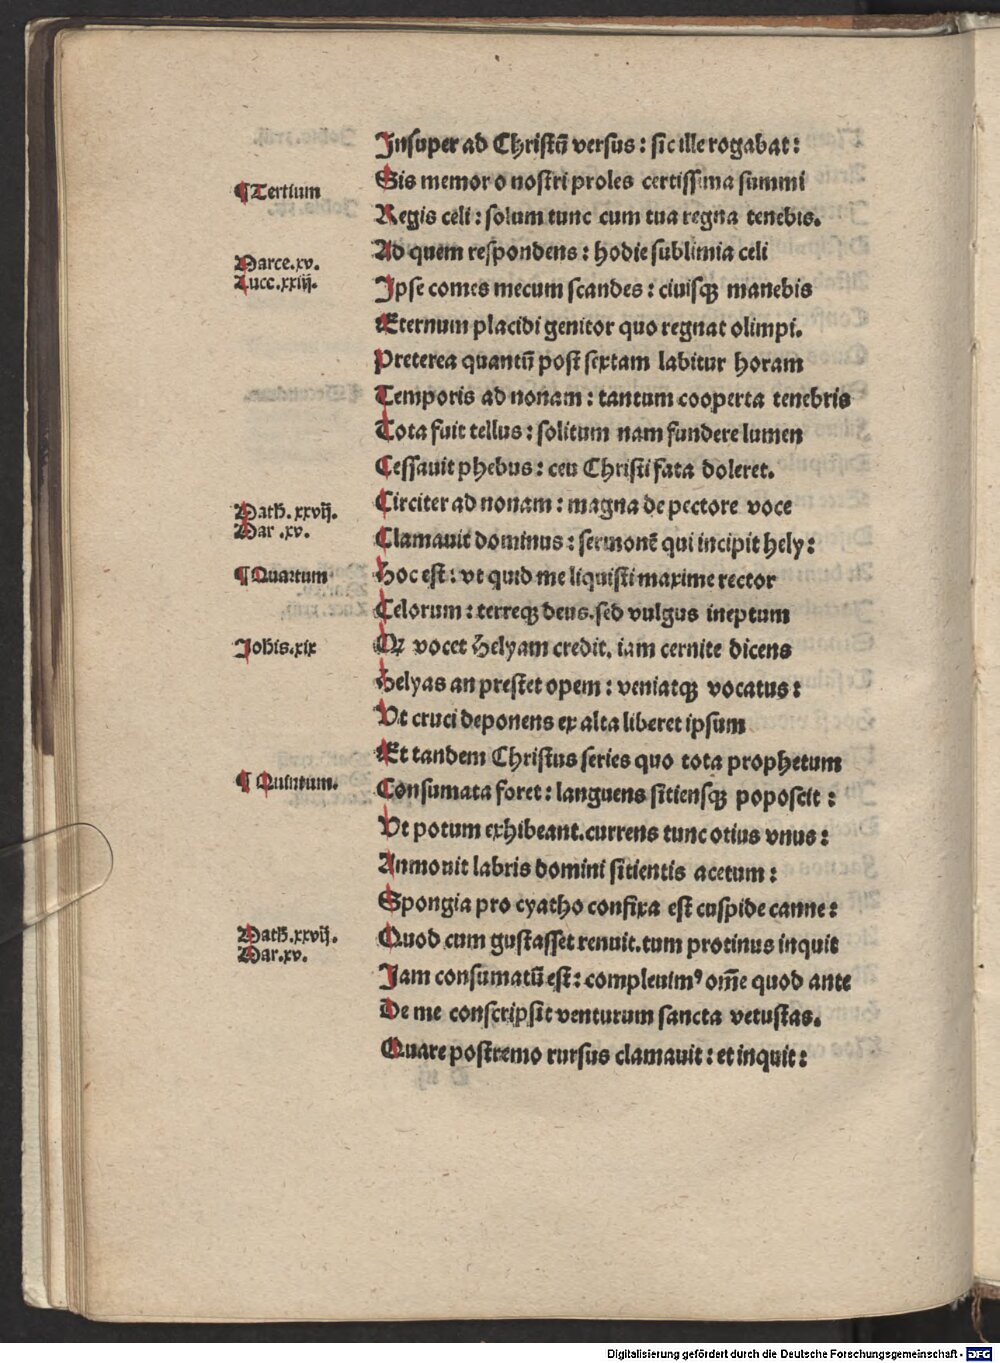 Insuper ad Christū versus : sic ille rogabat :
¶ Tertium
Sis memor o nostri proles certissima summi
Regis celi : solum tunc cum tua regna tenebis.
Ad quem respondens : hodie sublimia celi
Marce.xv.
Lucc.xxiij.
Ipse comes mecum scandes : ciuisqꝫ manebis
Eternum placidi genitor quo regnat olimpi.
Preterea quantū post sextam labitur horam
Temporis ad nonam : tantum cooperta tenebris
Tota fuit tellus : solitum nam fundere lumen
Cessauit phebus : ceu Christi fata doleret.
Math. xxvij.
Mar .xv.
Circiter ad nonam : magna de pectore voce
Clamauit dominus : sermonē qui incipit hely :
¶ Quartum
Hoc est : vt quid me liquisti maxime rector
Celorum : terreqꝫ deus. sed vulgus ineptum
Johis.xix
Qꝛ vocet Helyam credit. iam cernite dicens
Helyas an prestet opem : veniatqꝫ vocatus :
Vt cruci deponens ex alta liberet ipsum
Et tandem Christus series quo tota prophetum
¶ Quintum.
Consumata foret : languens sitiensqꝫ poposcit :
Vt potum exhibeant. currens tunc otius vnus :
Anmouit labris domini sitientis acetum :
Spongia pro cyatho confixa est cuspide canne :
Math.xxvij.
Mar.xv.
Quod cum gustasset renuit. tum protinus inquit
Jam consumatū est : compleuimꝰ om̄e quod ante
De me conscripsit venturum sancta vetustas.
Quare postremo rursus clamauit : et inquit :
Digitalisierung gefördert durch die Deutsche Forschungsgemeinschaft - DFG